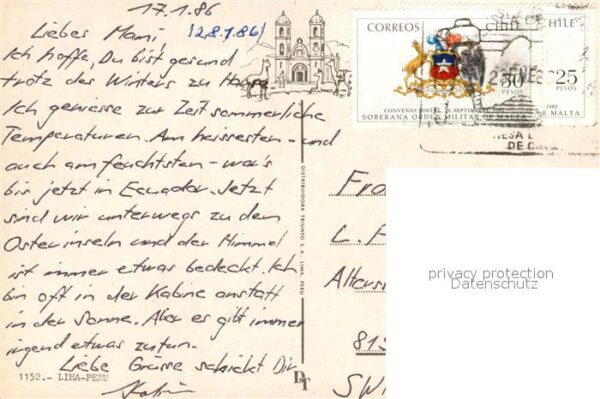 17.1.86
(28.1.86)
Liebe Mami,
Ich hoffe, Du bist gesund
trotz des Winters zu Hause
Ich geniesse zur Zeit sommerliche
Temperaturen. Am heissesten - und
auch am feuchtsten - war's
bis jetzt in Ecuador. Jetzt
sind wir unterwegs zu den
Osterinseln und der Himmel
ist immer etwas bedeckt. Ich
bin oft in der Kabine anstatt
in der Sonne. Aber es gibt immer
irgend etwas zu tun.
Liebe Grüsse schickt Dir
1152.- LIMA-PERU
DISTRIBUIDORA TRIUNFO S. A. LIMA, PERU
DT
CORREOS CHILE
50 PESOS 25 PESOS
CONVENIO POSTAL
1982
SOBERANA ORDEN MILITAR DE MALTA
DE MALTA
Fra
L. F
Alters
815
SW
privacy protection
Datenschutz